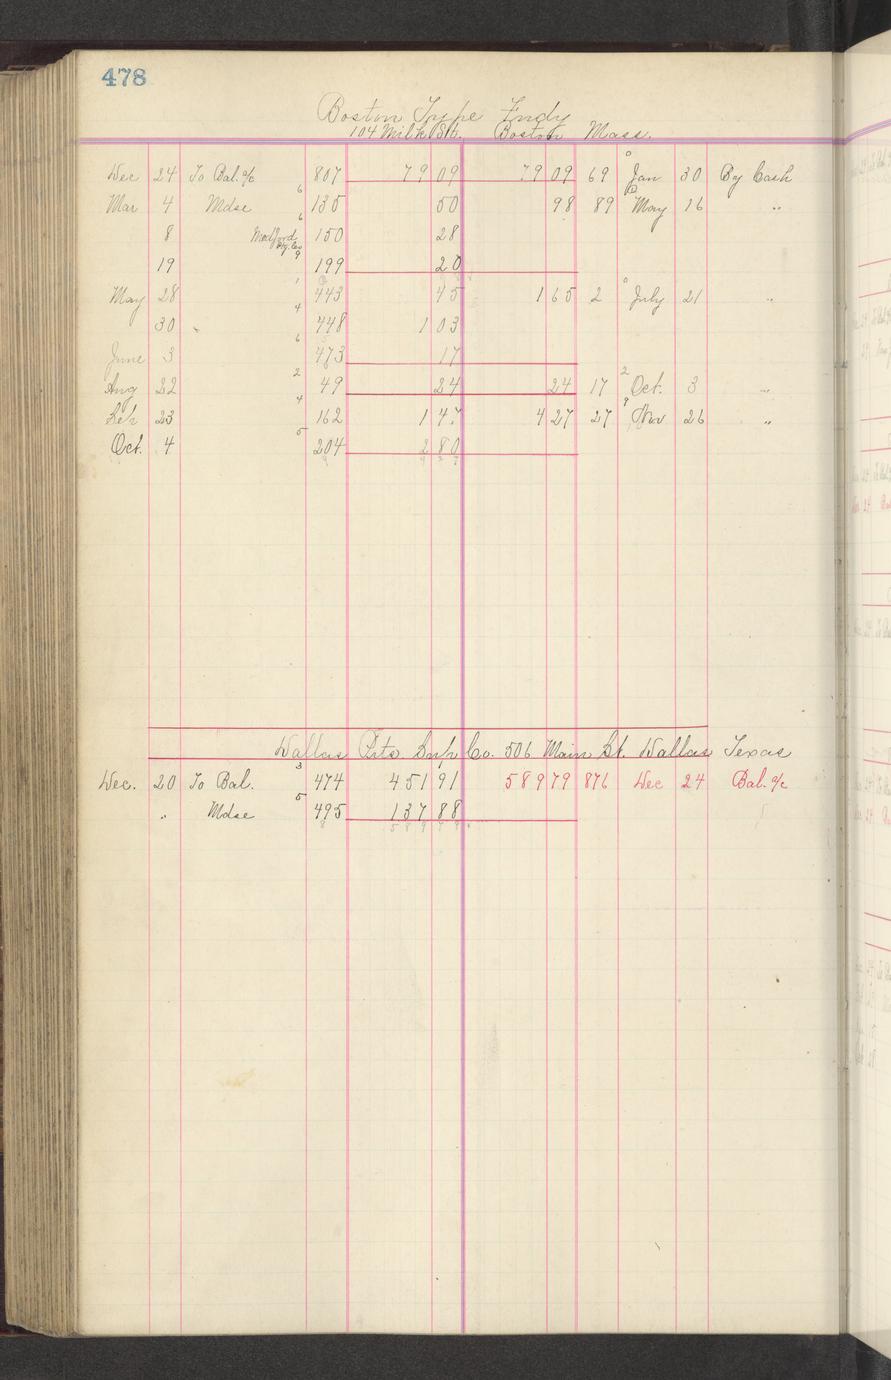 478
Boston Type Fndy
104 Milk St. Boston Mass.
Dec 24 To Bal. a/c 807 79 09 79 09 69 Jan 30 By Cash
Mar 4 Mdse 6 135 50 98 89 May 16 "
8 Medford 6 150 28
19 9 199 20
May 28 1 443 45 1 65 2 July 21 "
30 4 448 1 03
June 3 6 473 17
Aug 22 2 49 24 24 17 2 Oct. 3 "
23 4 162 1 47 4 27 27 9 Nov 26 "
Oct. 4 5 204 2 80
Dallas Ptrs Sup Co. 506 Main St. Dallas Texas
Dec. 20 To Bal. 3 474 451 91 589 79 876 Dec 24 Bal. a/c
" Mdse 5 495 137 88
589 79